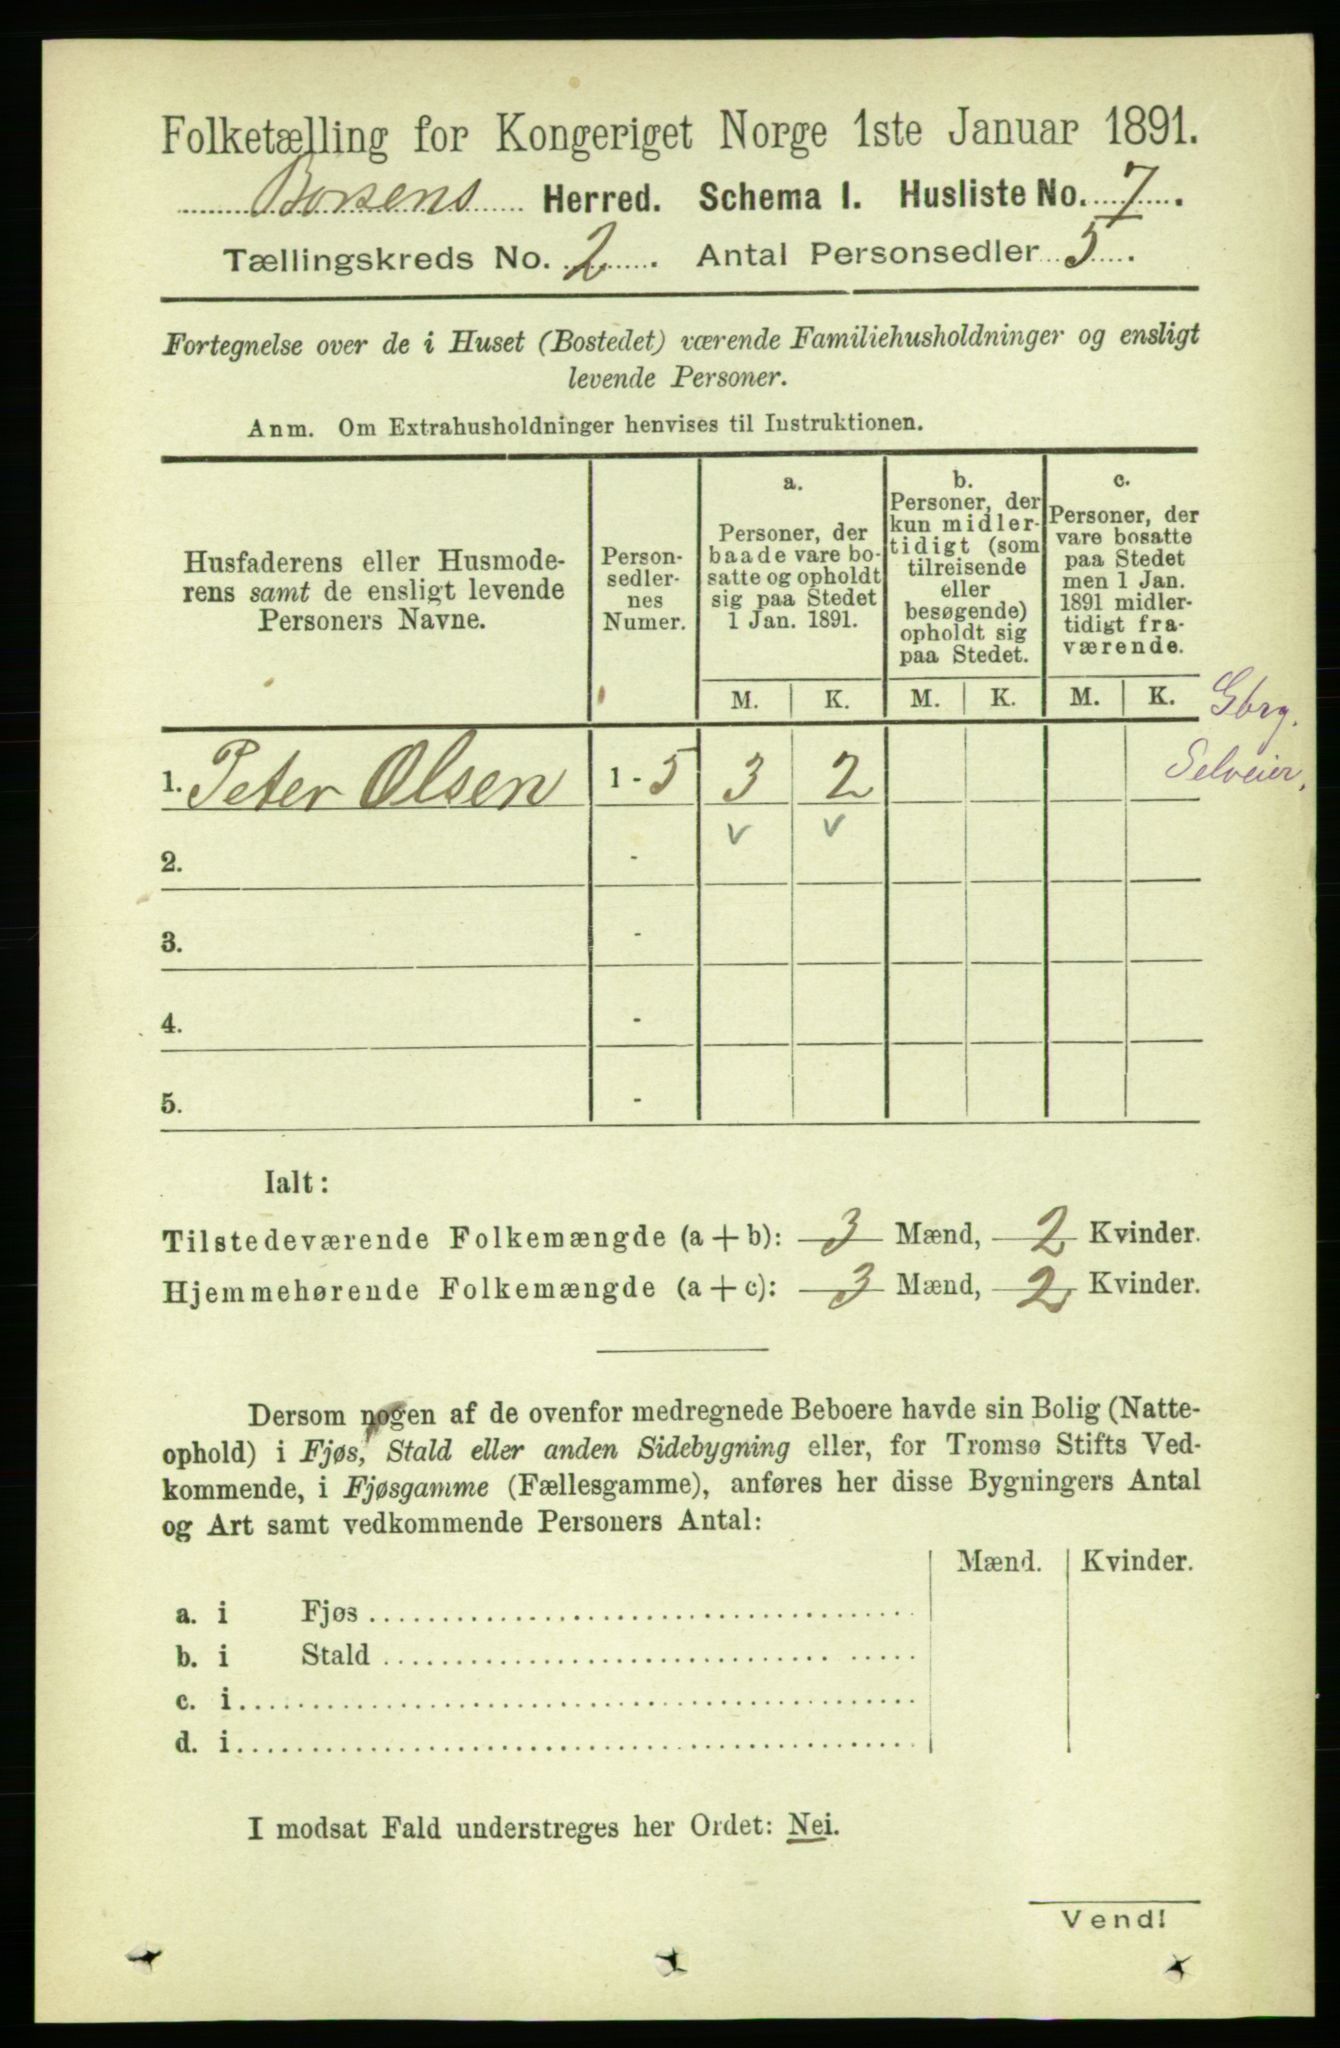 Folketælling for Kongeriget Norge 1ste Januar 1891.
Børsens Herred. Schema I. Husliste No. 7.
Tællingskreds No. 2. Antal Personsedler 5.
Fortegnelse over de i Huset (Bostedet) værende Familiehusholdninger og ensligt
levende Personer.
Anm. Om Extrahusholdninger henvises til Instruktionen.
Husfaderens eller Husmode-
rens samt de ensligt levende
Personers Navne.
Person-
sedler-
nes
Numer.
a.
Personer, der
baade vare bo-
satte og opholdt
sig paa Stedet
1 Jan. 1891.
b.
Personer, der
kun midler-
tidigt (som
tilreisende
eller
besøgende)
opholdt sig
paa Stedet.
c.
Personer, der
vare bosatte
paa Stedet
men 1 Jan.
1891 midler-
tidigt fra-
værende.
M. K. M. K. M. K.
Gbrg.
Selveier.
1. Peter Olsen 1 - 5 3 2
v v
2. -
3. -
4. -
5. -
Ialt:
Tilstedeværende Folkemængde (a + b): 3 Mænd, 2 Kvinder.
Hjemmehørende Folkemængde (a + c): 3 Mænd, 2 Kvinder.
Dersom nogen af de ovenfor medregnede Beboere havde sin Bolig (Natte-
ophold) i Fjøs, Stald eller anden Sidebygning eller, for Tromsø Stifts Ved-
kommende, i Fjøsgamme (Fællesgamme), anføres her disse Bygningers Antal
og Art samt vedkommende Personers Antal:
Mænd. Kvinder.
a. i Fjøs
b. i Stald
c. i
d. i
I modsat Fald understreges her Ordet: Nei.
Vend!